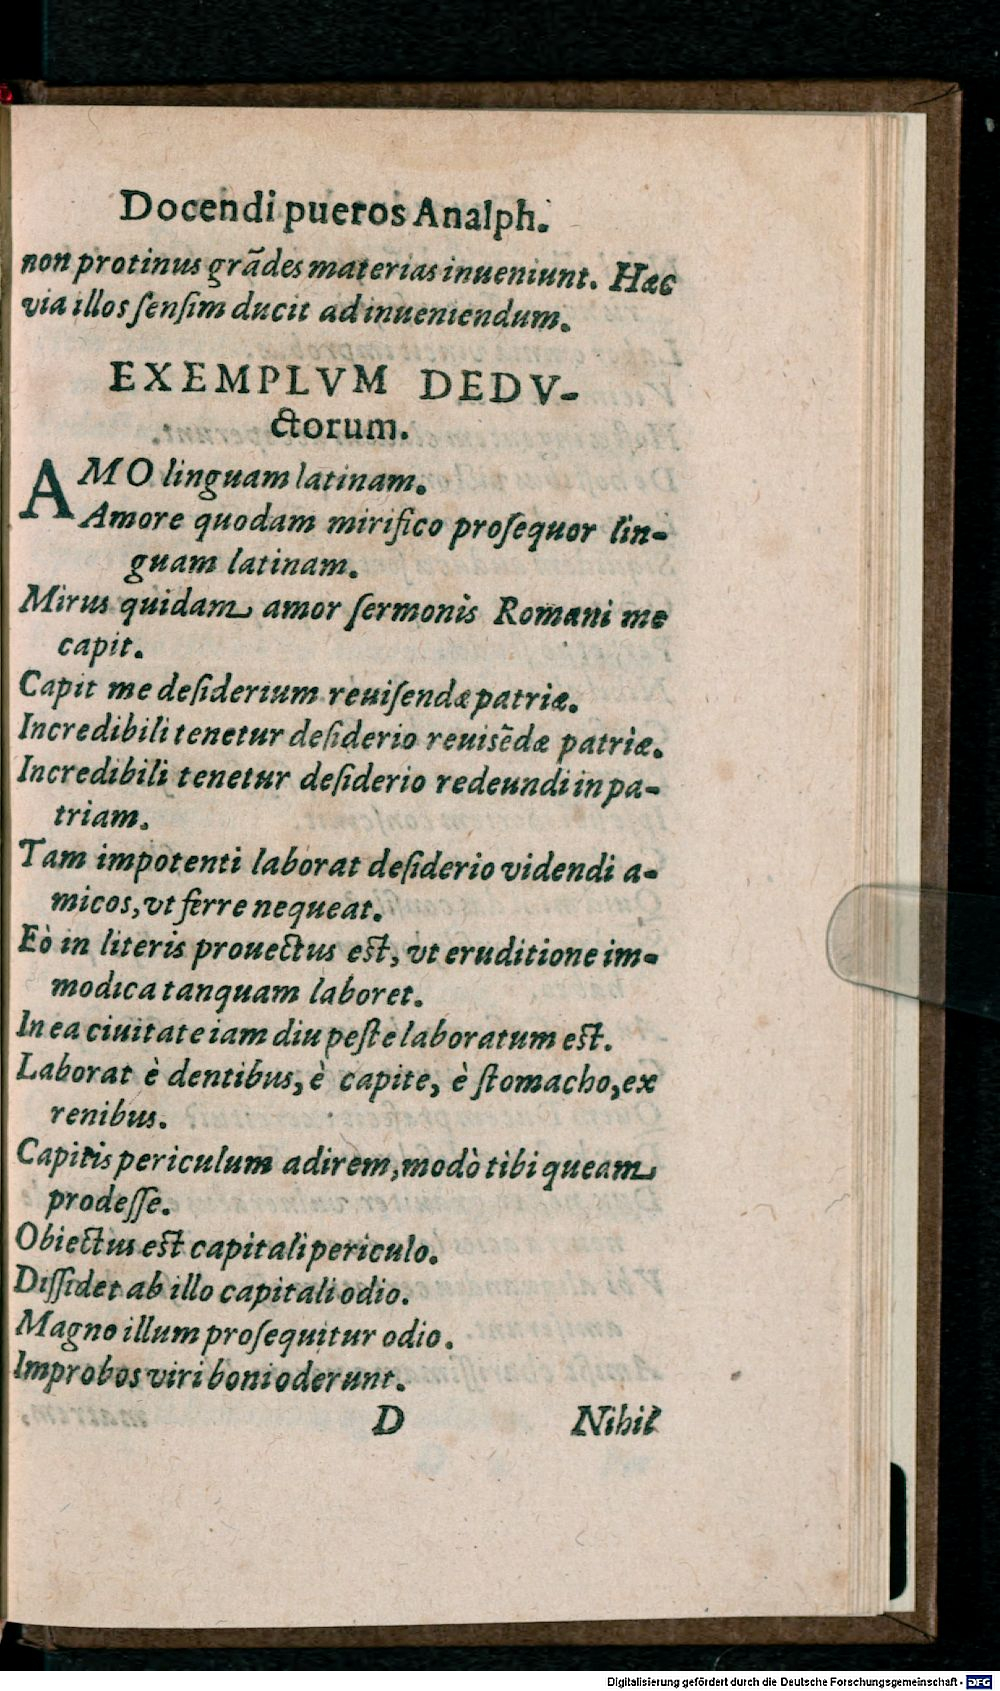 Docendi pueros Analph.
non protinus grãdes materias inueniunt. Hæc
via illos ſenſim ducit ad inueniendum.
EXEMPLVM DEDV-
ctorum.
AMO linguam latinam.
Amore quodam mirifico proſequor lin-
guam latinam.
Mirus quidam amor ſermonis Romani me
capit.
Capit me deſiderium reuiſendæ patriæ.
Incredibili tenetur deſiderio reuisẽdæ patriæ.
Incredibili tenetur deſiderio redeundi in pa-
triam.
Tam impotenti laborat deſiderio videndi a-
micos, vt ferre nequeat.
Eò in literis prouectus est, vt eruditione im-
modica tanquam laboret.
In ea ciuitate iam diu peſte laboratum est.
Laborat è dentibus, è capite, è ſtomacho, ex
renibus.
Capitis periculum adirem, modò tibi queam
prodeſſe.
Obiectus est capitali periculo.
Diſſidet ab illo capitali odio.
Magno illum proſequitur odio.
Improbos viri boni oderunt.
D Nihil
Digitalisierung gefördert durch die Deutsche Forschungsgemeinschaft - DFG